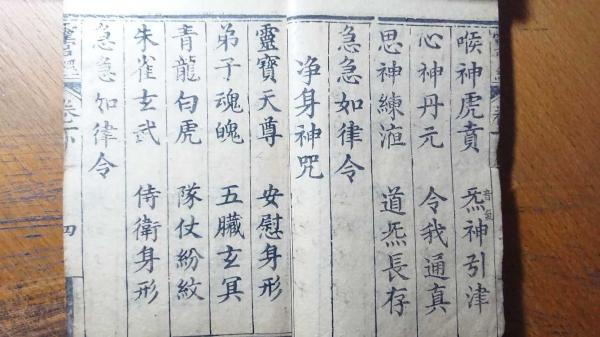 喉神虎賁 炁神引津
音氣
心神丹元 令我通真
思神練 道炁長存
急急如律令
净身神咒
靈寶天尊 安慰身形
弟子魂魄 五臟玄冥
青龍白虎 隊仗紛紋
朱雀玄武 侍衛身形
急急如律令
四